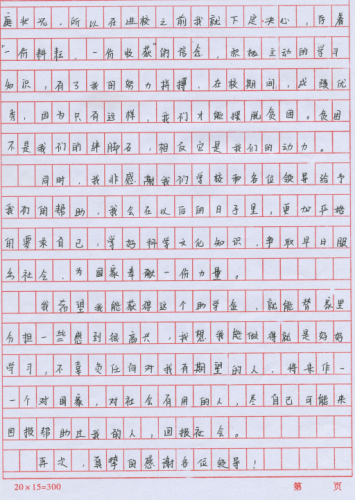 状况，所以在进校之前我就下定决心，存着
“一份耕耘，一份收获”的信念，积极主动的学习
知识，有了我的努力拼搏，在校期间，成绩优
秀，因为只有这样，我们才能摆脱贫困。贫困
不是我们的绊脚石，相反它是我们的动力。
同时，我非感谢我们学校和各位领导给予
我们的帮助，我会在以后的日子里，更加严格
的要求自己，学好科学文化知识，争取早日服
务社会，为国家奉献一份力量。
我希望我能获得这个助学金，就能替家里
分担一些感到很高兴，我想我能做得就是好好
学习，不辜负任何对我有期望的人，将来作一
一个对国家，对社会有用的人，尽自己可能来
回报帮助过我的人，回报社会。
再次，真挚的感谢各位领导！
20×15=300 第 页